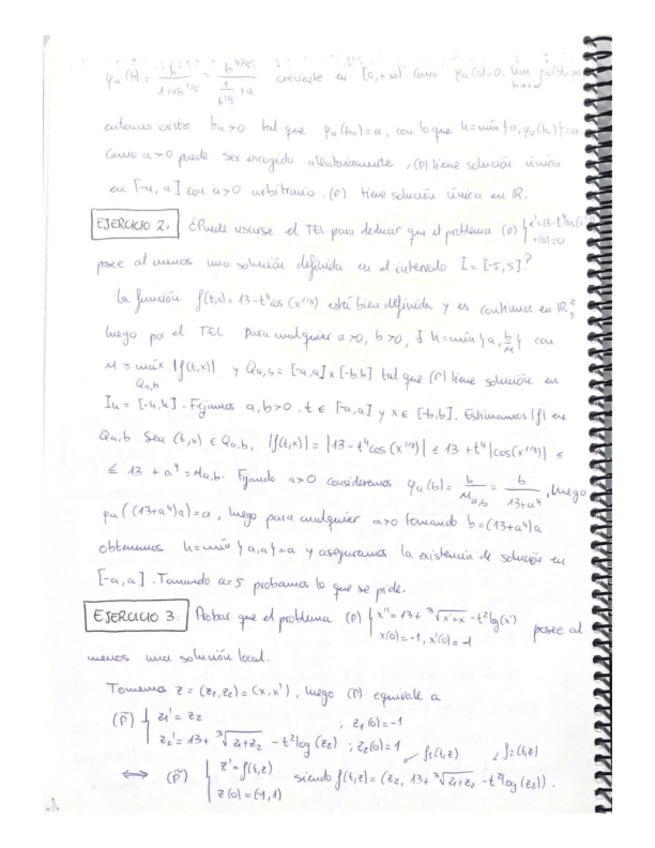 φa(b) = b / 1+ab^1/5 = b^4/5 / 1/b^1/5 + a creciente en [0,+∞). Como φa(0)=0, lim b→+∞ φa(b)=∞
entonces existe ba>0 tal que φa(ba)=a, con lo que h=mín{a,φa(ba)}=a.
Como a>0 puede ser escogido aleatoriamente, (P) tiene solución única
en [-a,a] con a>0 arbitrario. (P) tiene solución única en ℝ.
EJERCICIO 2: ¿Puede usarse el TEL para deducir que el problema (P) { x'=13-t⁴cos(x
x(0)=0
posee al menos una solución definida en el intervalo I=[-5,5]?
La función f(t,x)=13-t⁴cos(x^1/3) está bien definida y es continua en ℝ²,
luego por el TEL para cualquier a>0, b>0, ∃ h=mín{a, b/M} con
M = máx |f(t,x)| y Qa,b=[-a,a]x[-b,b] tal que (P) tiene solución en
Qa,b
Ih=[-h,h]. Fijamos a,b>0, t∈[-a,a] y x∈[-b,b]. Estimamos |f| en
Qa,b. Sea (t,x)∈Qa,b, |f(t,x)|=|13-t⁴cos(x^1/3)| ≤ 13+t⁴|cos(x^1/3)| ≤
≤ 13+a⁴=Ma,b. Fijando a>0 consideremos φa(b)= b/Ma,b = b/13+a⁴, luego
φa((13+a⁴)a)=a, luego para cualquier a>0 tomando b=(13+a⁴)a
obtenemos h=mín{a,a}=a y aseguramos la existencia de solución en
[-a,a]. Tomando a=5 probamos lo que se pide.
EJERCICIO 3: Probar que el problema (P) { x''=13+∛x'+x -t²log(x') posee al
x(0)=-1, x'(0)=1
menos una solución local.
Tomemos z=(z₁,z₂)=(x,x'), luego (P) equivale a
(P̃) { z₁'=z₂ ; z₁(0)=-1
z₂'=13+∛z₁+z₂ -t²log(z₂) ; z₂(0)=1
f₁(t,z) f₂(t,z)
⟷ (P̃) { z'=f(t,z) siendo f(t,z)=(z₂, 13+∛z₁+z₂ -t²log(z₂)).
z(0)=(-1,1)